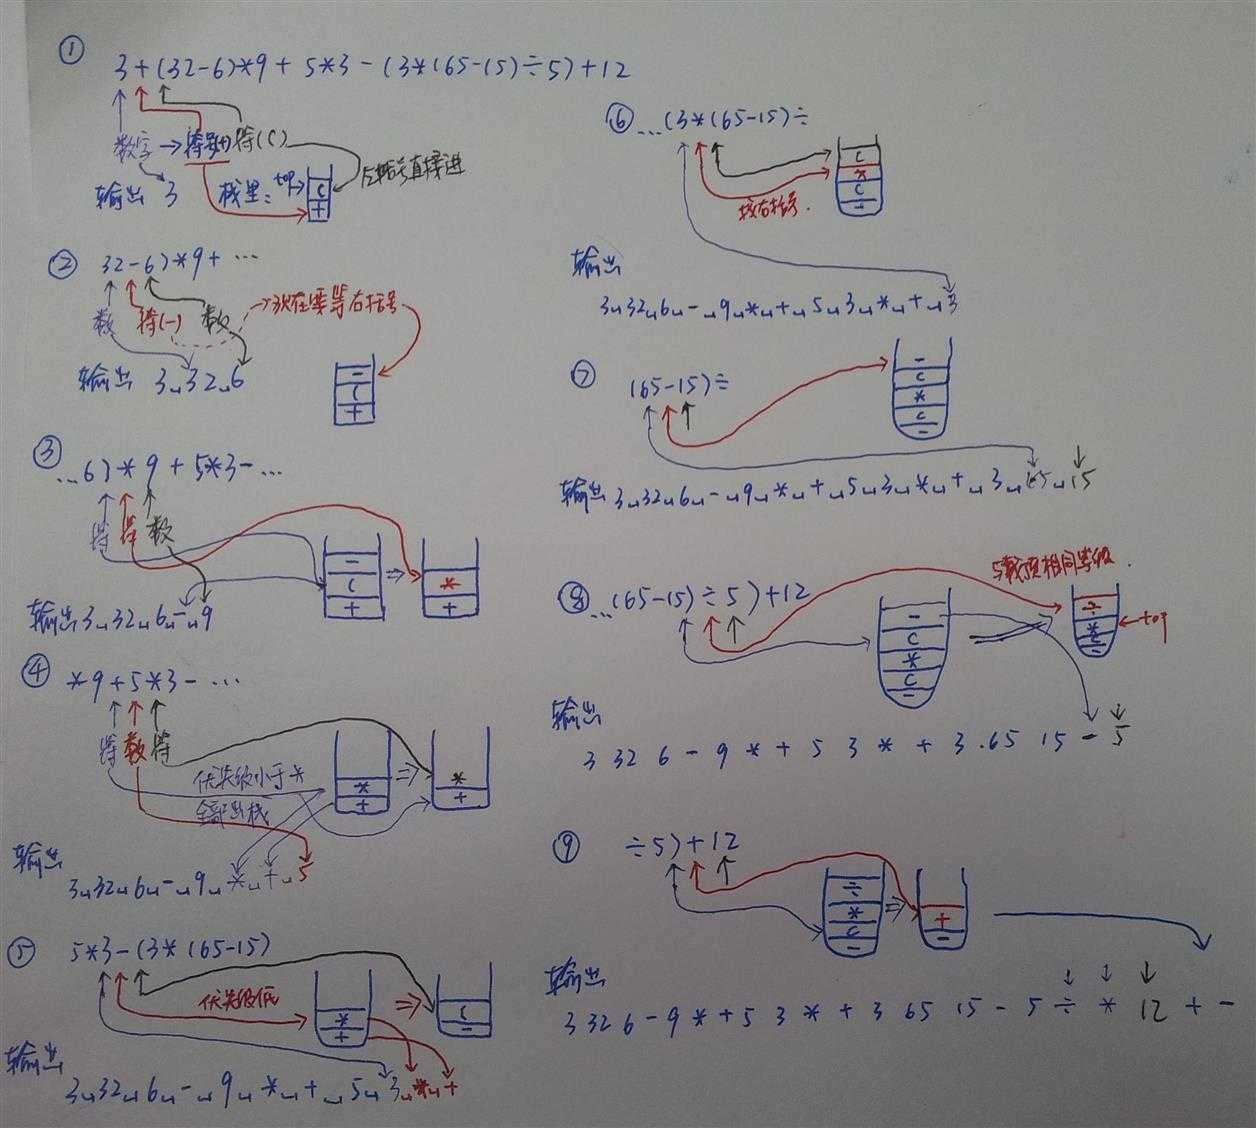 ①
3+(32-6)*9+5*3-(3*(65-15)÷5)+12
数字→符号(+) 符(()
左括号直接进
输出 3 栈里: top→
(
+
② 32-6)*9+…
数 符(-) 数 →次在要等右括号
输出 3␣32␣6
-
(
+
③
…6)*9+5*3-…
符 符 数
-
(
+
⇒
*
+
输出 3␣32␣6␣-␣9
④ *9+5*3-…
符 数 符
优先级小于*
全部出栈
*
+
⇒
*
+
输出
3␣32␣6␣-␣9␣*␣+␣5
⑤ 5*3-(3*(65-15)
优先级低
*
+
⇒
(
-
输出
3␣32␣6␣-␣9␣*␣+␣5␣3␣*␣+
⑥ …(3*(65-15)÷
(
*
(
÷
右括号.
输出
3␣32␣6␣-␣9␣*␣+␣5␣3␣*␣+␣3
⑦ (65-15)÷
-
(
*
(
-
输出 3␣32␣6␣-␣9␣*␣+␣5␣3␣*␣+␣3␣65␣15
与栈顶相同等级.
⑧ …(65-15)÷5)+12
-
(
*
(
-
÷
*
(
-
←top
输出
3 32 6 - 9 * + 5 3 * + 3.65 15 - 5
⑨ ÷5)+12
÷
*
(
-
⇒
+
-
输出
3 32 6 - 9 * + 5 3 * + 3 65 15 - 5 ÷ * 12 + -